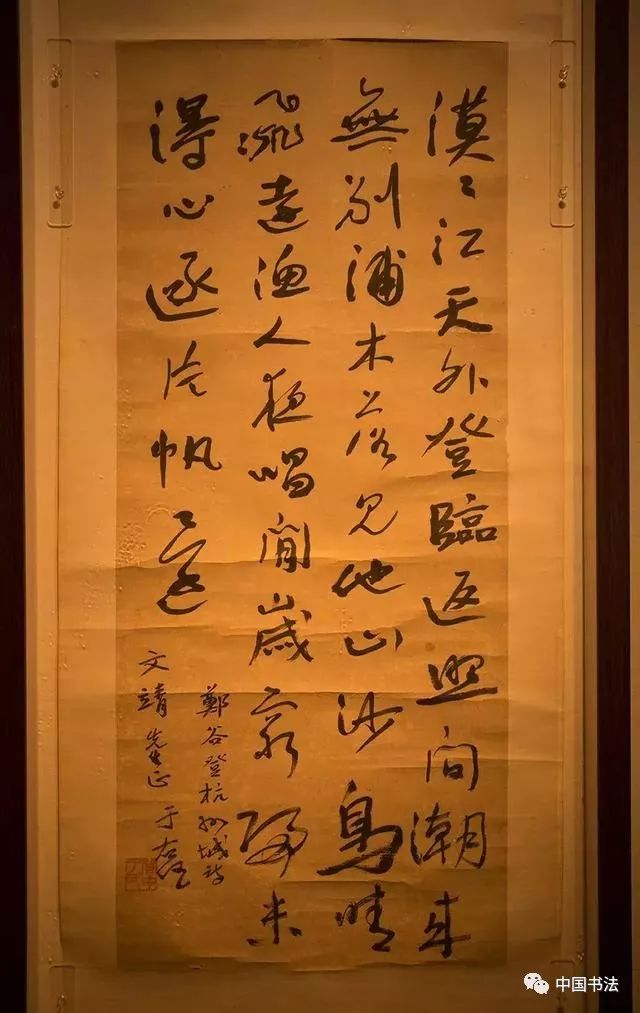 漠〻江天外登臨返照间潮来
無别浦木落見他山沙鳥晴
飛遠漁人夜唱闲歲窮歸未
得心逐片帆〻還
鄭谷登杭州城詩
文靖先生正 于右任
中国书法